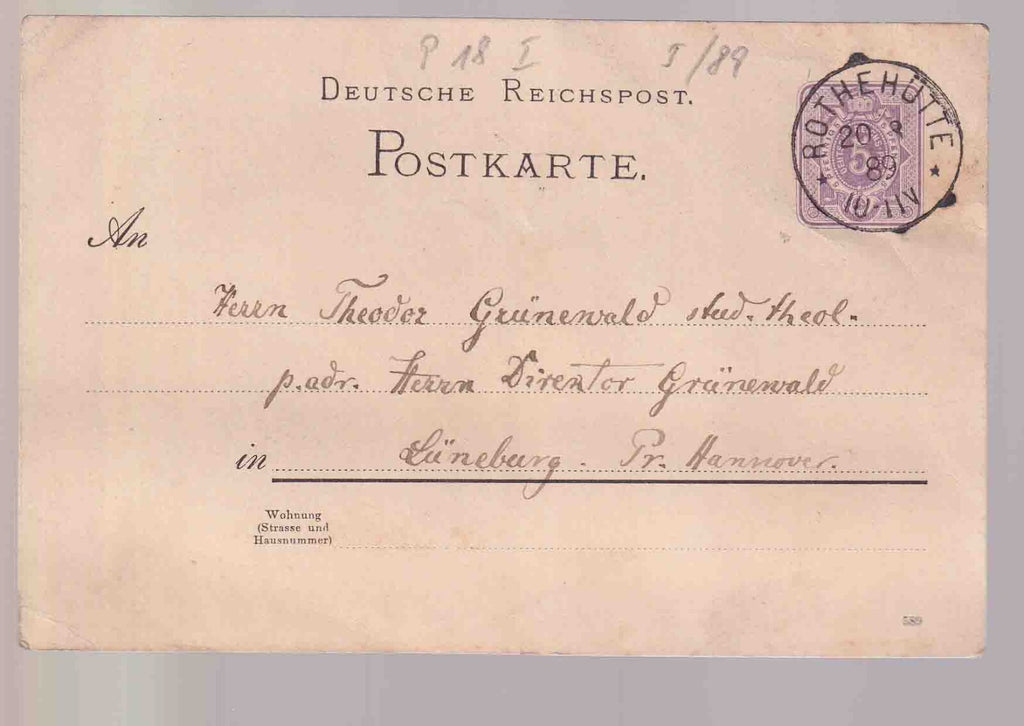 P 18 I I/89
DEUTSCHE REICHSPOST.
POSTKARTE.
ROTHEHÜTTE
20 8
89
* 10-11V *
5
An
Herrn Theodor Grünewald stud. theol.
p. adr. Herrn Direktor Grünewald
in Lüneburg. Pr. Hannover.
Wohnung
(Strasse und
Hausnummer)
589